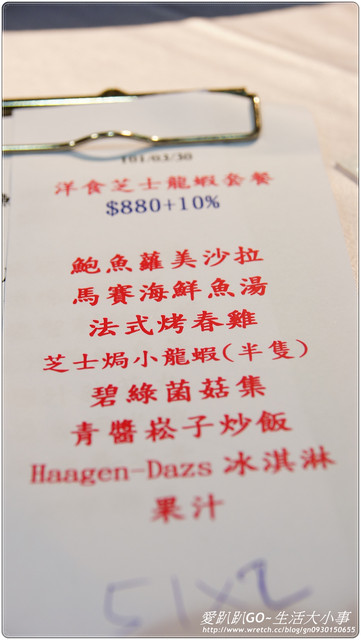 101/03/30
洋食芝士龍蝦套餐
$880+10%
鮑魚蘿美沙拉
馬賽海鮮魚湯
法式烤春雞
芝士焗小龍蝦(半隻)
碧綠菌菇集
青醬菘子炒飯
Haagen-Dazs 冰淇淋
果汁
51x2
愛趴趴GO~生活大小事
http://www.wretch.cc/blog/gn0930150655